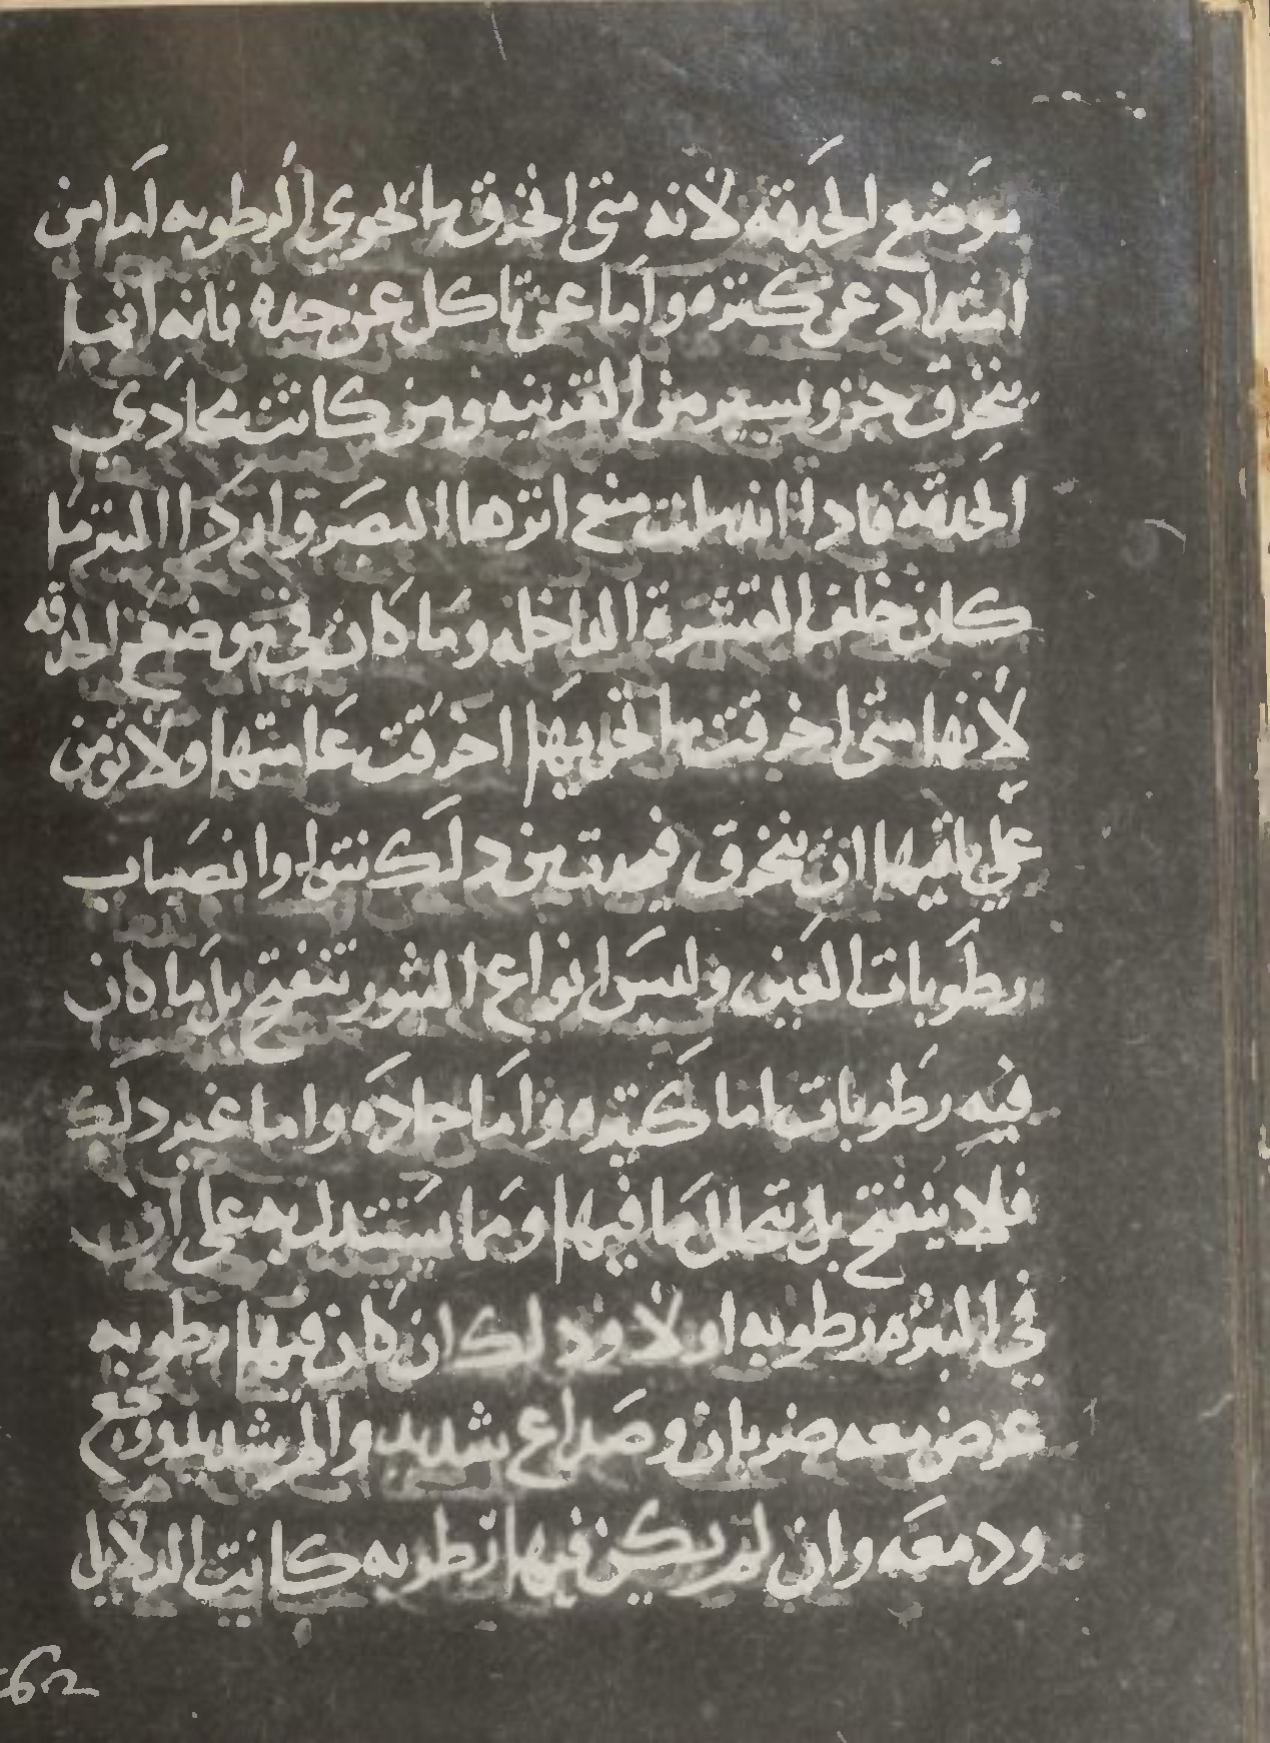 موضع الحدقه لانه متى انخرق ما تحوي الرطوبه اما من
امتداد عن كثره واما عن تاكل عن حده فانه انما
ينخرق جزو يسير من القرنيه ومن كانت تحادي
الحدقه فادا اندملت منع اثرها البصر وادكر البثر ما
كان خلف القشرة الداخله وما كان في موضع الحدقه
لانها متى احرقت ما تحويها احرقت عامتها ولا تومن
على باقيها ان ينخرق فيحدث من دلك نتوا وانصباب
رطوبات العين وليس انواع البثور تنفتح بل ما كان
فيه رطوبات اما كثيره واما حاده واما غير دلك
فلا ينفتح بل يتحلل ما فيها ومما يستدل به على ان
في البثره رطوبه او لا ودلك ان كان فيها رطوبه
عرض معه ضربان وصداع شديد والم شديد ووجع
ودمعه وان لم يكن فيها رطوبه كانت الدلايل